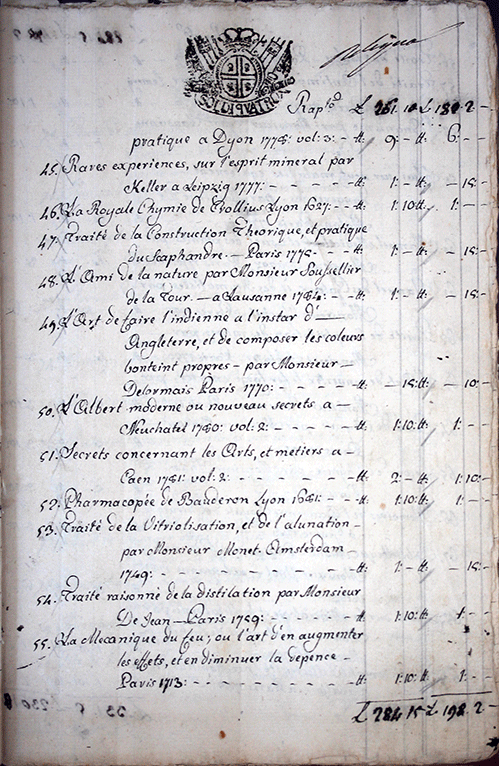 SOLDI QVATRO
Rapto ₶ 261:10 ₶ 189:2-
pratique a Dyon 1778: vol: 3: - ₶: 9: - ₶: 6: -
45. Rares experiences, sur l'esprit mineral par
Keller a Leipzig 1777: - - - - - ₶: 1: - ₶ - 15:
46. La Royale Chymie de Crollius Lyon 1627: - - ₶: 1:10 ₶. 1: -
47. Traité de la Construction Theorique, et pratique
du Scaphandre. - Paris 1775: - - - ₶: 1: - ₶ - 15:
48. L'Ami de la nature par Monsieur Soussellier
de la Tour. - a Lausanne 1784: - - ₶: 1: - ₶ - 15:
49. L'Art de faire l'indienne a l'instar d'
Angleterre, et de composer les coleurs
bonteint propres - par Monsieur -
Delormais Paris 1770: - - - - - ₶ - 15: ₶: - 10:
50. L'Albert moderne ou nouveau secrets a -
Neuchatel 1780: vol: 2: - - - - ₶: 1:10: ₶: 1: -
51. Secrets concernant les Arts, et metiers a -
Caen 1781: vol: 2: - - - - - ₶: 2: - ₶: 1:10:
52. Pharmacopée de Bauderon Lyon 1681: - - ₶: 1:10: ₶: 1: -
53. Traité de la Vitriolisation, et de l'alunation -
par Monsieur Monet. Amsterdam -
1749: - - - - - - - - - ₶: 1: - ₶ - 15:
54. Traité raisonné de la distilation par Monsieur
De Jean - Paris 1759: - - - - ₶: 1:10: ₶: 1: -
55. La Mecanique du feu; ou l'art d'en augmenter
les effets, et en diminuer la depence -
Paris 1713: - - - - - - - - ₶: 1:10: ₶: 1: -
₶ 284:15 ₶ 198:2-